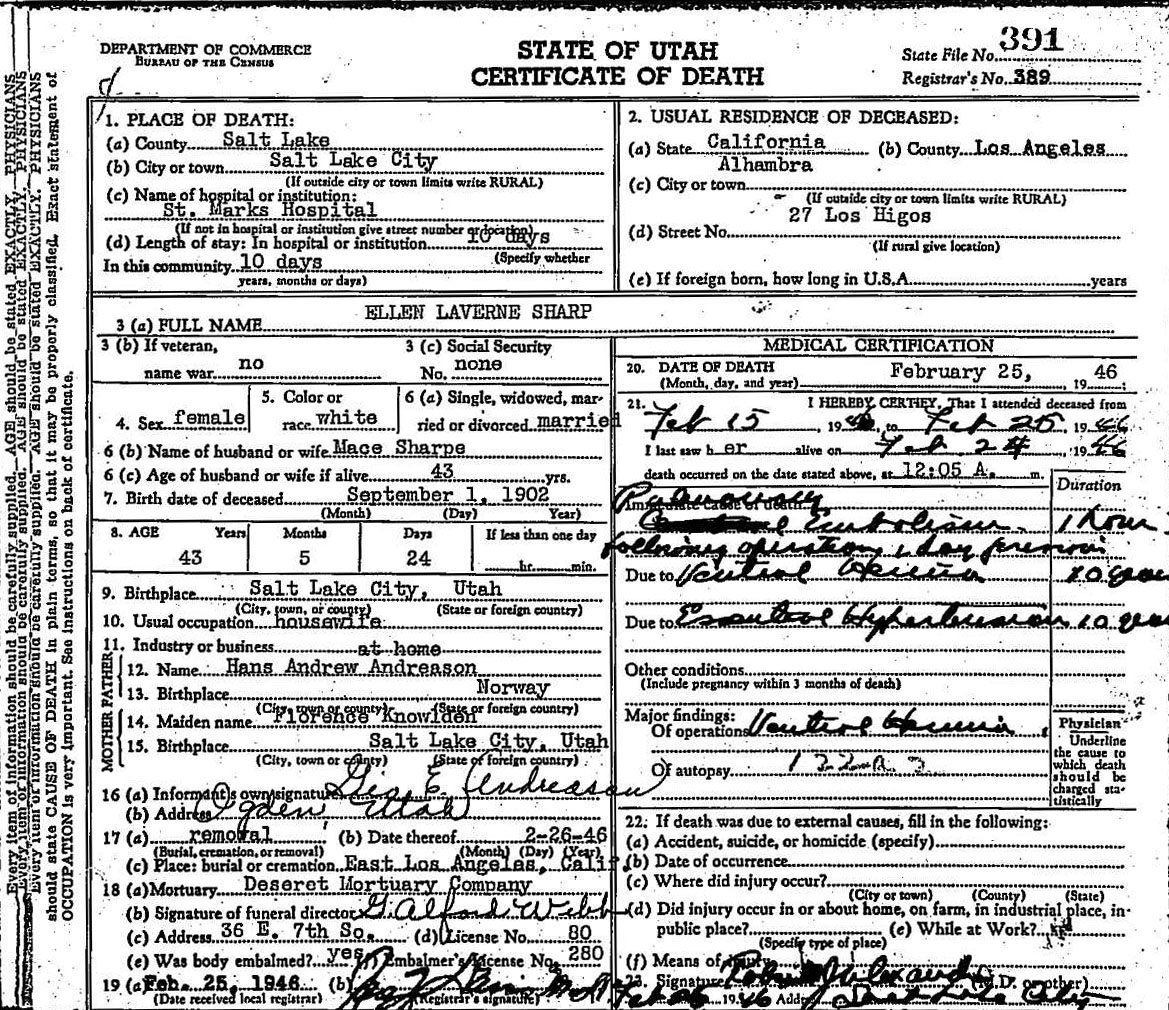 DEPARTMENT OF COMMERCE
BUREAU OF THE CENSUS
STATE OF UTAH
CERTIFICATE OF DEATH
State File No. 391
Registrar's No. 389
1. PLACE OF DEATH:
(a) County Salt Lake
(b) City or town Salt Lake City
(If outside city or town limits write RURAL)
(c) Name of hospital or institution:
St. Marks Hospital
(If not in hospital or institution give street number or location)
(d) Length of stay: In hospital or institution 10 days
(Specify whether
In this community 10 days
years, months or days)
2. USUAL RESIDENCE OF DECEASED:
(a) State California (b) County Los Angeles
Alhambra
(c) City or town
(If outside city or town limits write RURAL)
27 Los Higos
(d) Street No.
(If rural give location)
(e) If foreign born, how long in U.S.A. years
ELLEN LAVERNE SHARP
3 (a) FULL NAME
3 (b) If veteran,
name war no
3 (c) Social Security
No. none
4. Sex female
5. Color or
race white
6 (a) Single, widowed, mar-
ried or divorced married
6 (b) Name of husband or wife Mace Sharpe
6 (c) Age of husband or wife if alive 43 yrs.
7. Birth date of deceased September 1, 1902
(Month) (Day) Year)
8. AGE Years Months Days If less than one day
43 5 24 hr. min.
9. Birthplace Salt Lake City, Utah
(City, town, or county) (State or foreign country)
10. Usual occupation housewife
11. Industry or business at home
FATHER
12. Name Hans Andrew Andreason
13. Birthplace Norway
(City, town or county) (State or foreign country)
MOTHER
14. Maiden name Florence Knowlden
15. Birthplace Salt Lake City, Utah
(City, town or county) (State or foreign country)
16 (a) Informant's own signature E. Andreason
(b) Address Ogden Utah
17 (a) removal (b) Date thereof 2-26-46
(Burial, cremation, or removal) (Month) (Day) (Year)
(c) Place: burial or cremation East Los Angeles, Calif.
18 (a) Mortuary Deseret Mortuary Company
(b) Signature of funeral director G. Alford Webb
(c) Address 36 E. 7th So. (d) License No. 80
(e) Was body embalmed? yes (f) Embalmer's License No. 280
19 (a) Feb. 25, 1946 (b)
(Date received local registrar) (Registrar's signature)
MEDICAL CERTIFICATION
20. DATE OF DEATH February 25, 19 46;
(Month, day, and year)
21. I HEREBY CERTIFY, That I attended deceased from
Feb 15, 1946, to Feb 25, 1946
I last saw her alive on Feb 24, 1946
death occurred on the date stated above, at 12:05 A. m.
Duration
Pulmonary
Immediate cause of death
Embolism 1 hour
following operation, 1 day previous
Due to Ventral Hernia 10 years
Due to Essential Hypertension 10 years
Other conditions
(Include pregnancy within 3 months of death)
Major findings:
Of operations Ventral Hernia
Of autopsy
Physician
Underline
the cause to
which death
should be
charged sta-
tistically
22. If death was due to external causes, fill in the following:
(a) Accident, suicide, or homicide (specify)
(b) Date of occurrence
(c) Where did injury occur?
(City or town) (County) (State)
(d) Did injury occur in or about home, on farm, in industrial place, in-
public place? (e) While at Work?
(Specify type of place)
(f) Means of injury
23. Signature (M.D. or other)
Feb 25 1946 Addr Salt Lake City
Every item of information should be carefully supplied. AGE should be stated EXACTLY. PHYSICIANS
should state CAUSE OF DEATH in plain terms, so that it may be properly classified. Exact statement of
OCCUPATION is very important. See instructions on back of certificate.